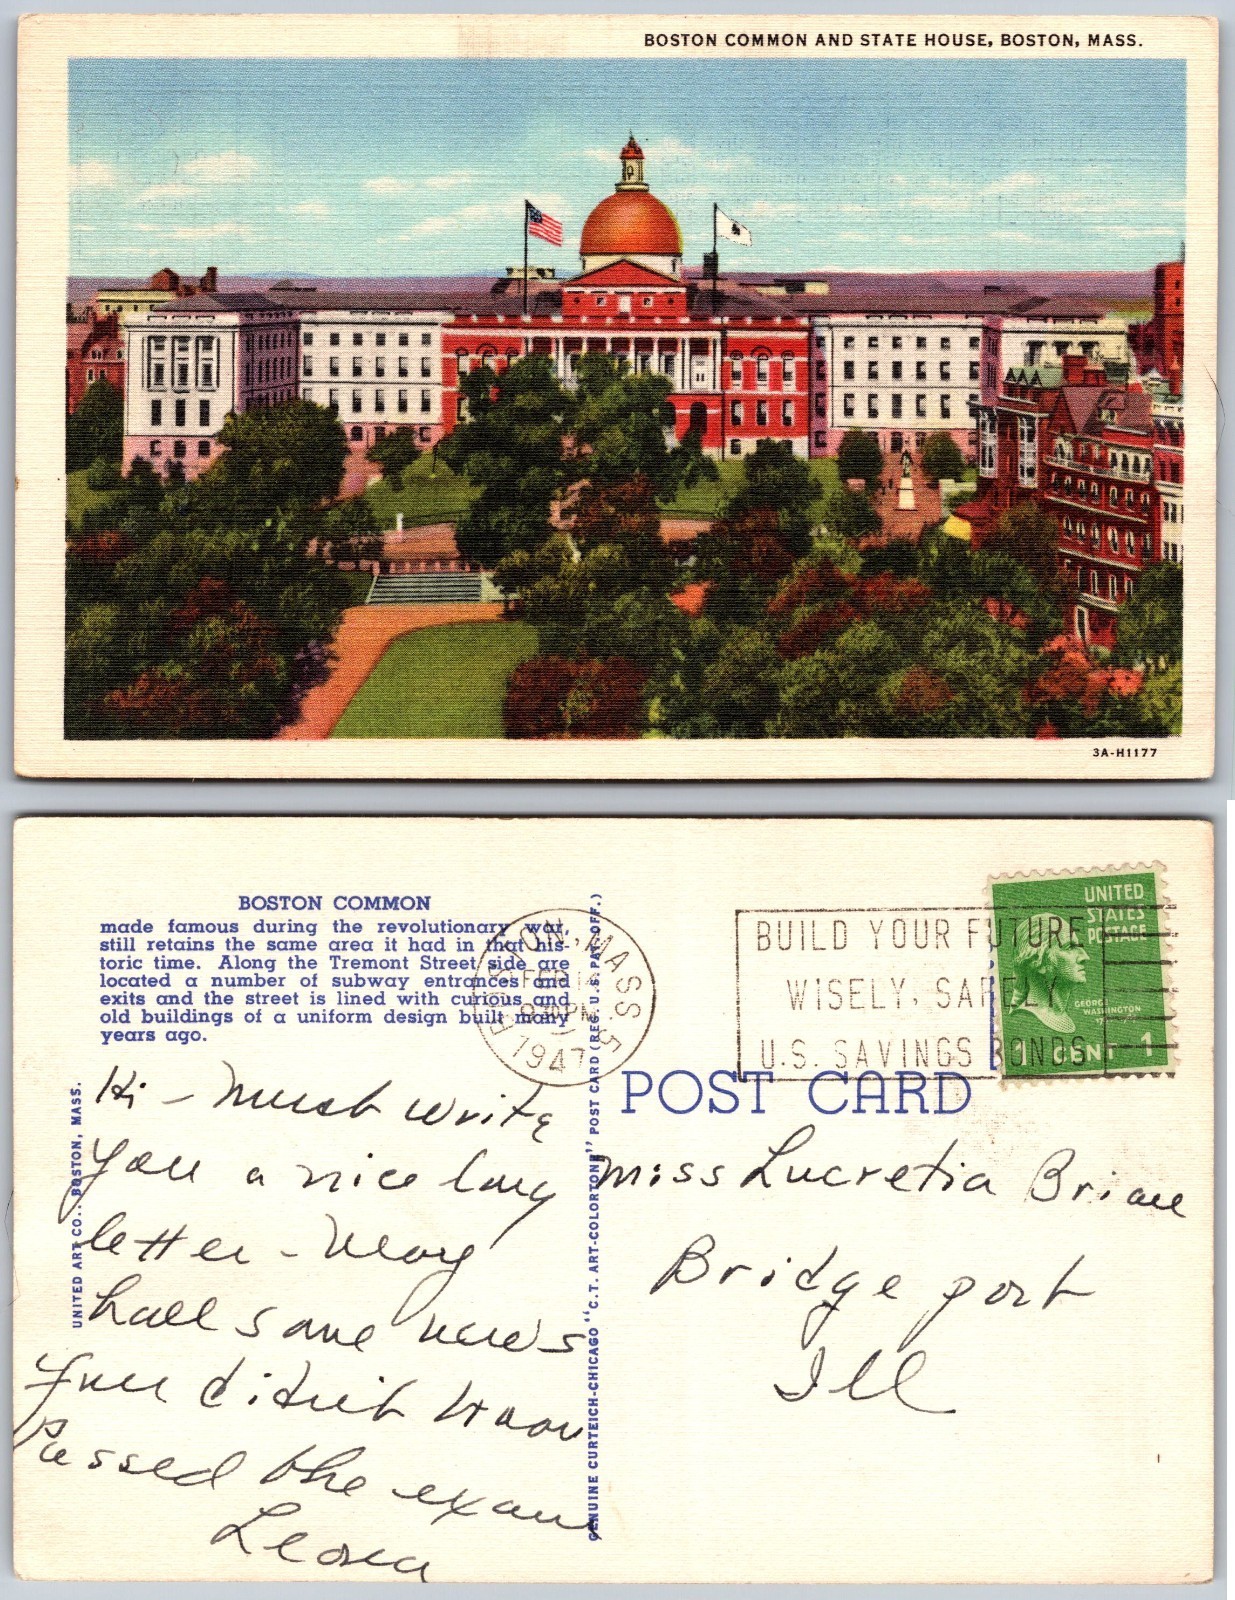 BOSTON COMMON AND STATE HOUSE, BOSTON, MASS.
3A-H1177
BOSTON COMMON
made famous during the revolutionary war,
still retains the same area it had in that his-
toric time. Along the Tremont Street side are
located a number of subway entrances and
exits and the street is lined with curious and
old buildings of a uniform design built many
years ago.
UNITED ART CO., BOSTON, MASS.
Hi - Must write
you a nice long
letter - Mary
hall some news
you didn't know
Passed the exam
Leona
GENUINE CURTEICH-CHICAGO "C.T. ART-COLORTONE" POST CARD (REG. U.S. PAT. OFF.)
BOSTON, MASS.
FEB 14
930 PM
1947
BUILD YOUR FUTURE
WISELY, SAFELY
U.S. SAVINGS BONDS
UNITED
STATES
POSTAGE
GEORGE
WASHINGTON
1 CENT 1
POST CARD
Miss Lucretia
Bridgeport
Ill